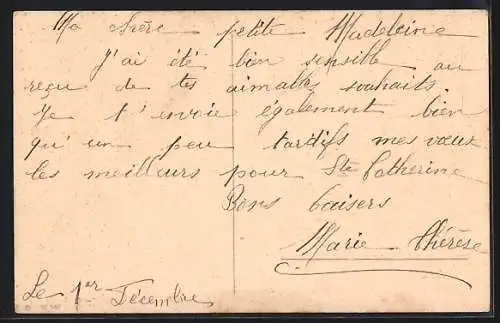 Ma chère petite Madeleine
J'ai été bien sensible au
reçu de tes aimables souhaits.
Je t'envoie également bien
qu'un peu tardifs mes vœux
les meilleurs pour Ste Catherine
Bons baisers
Marie-Thérèse
Le 1er Décembre